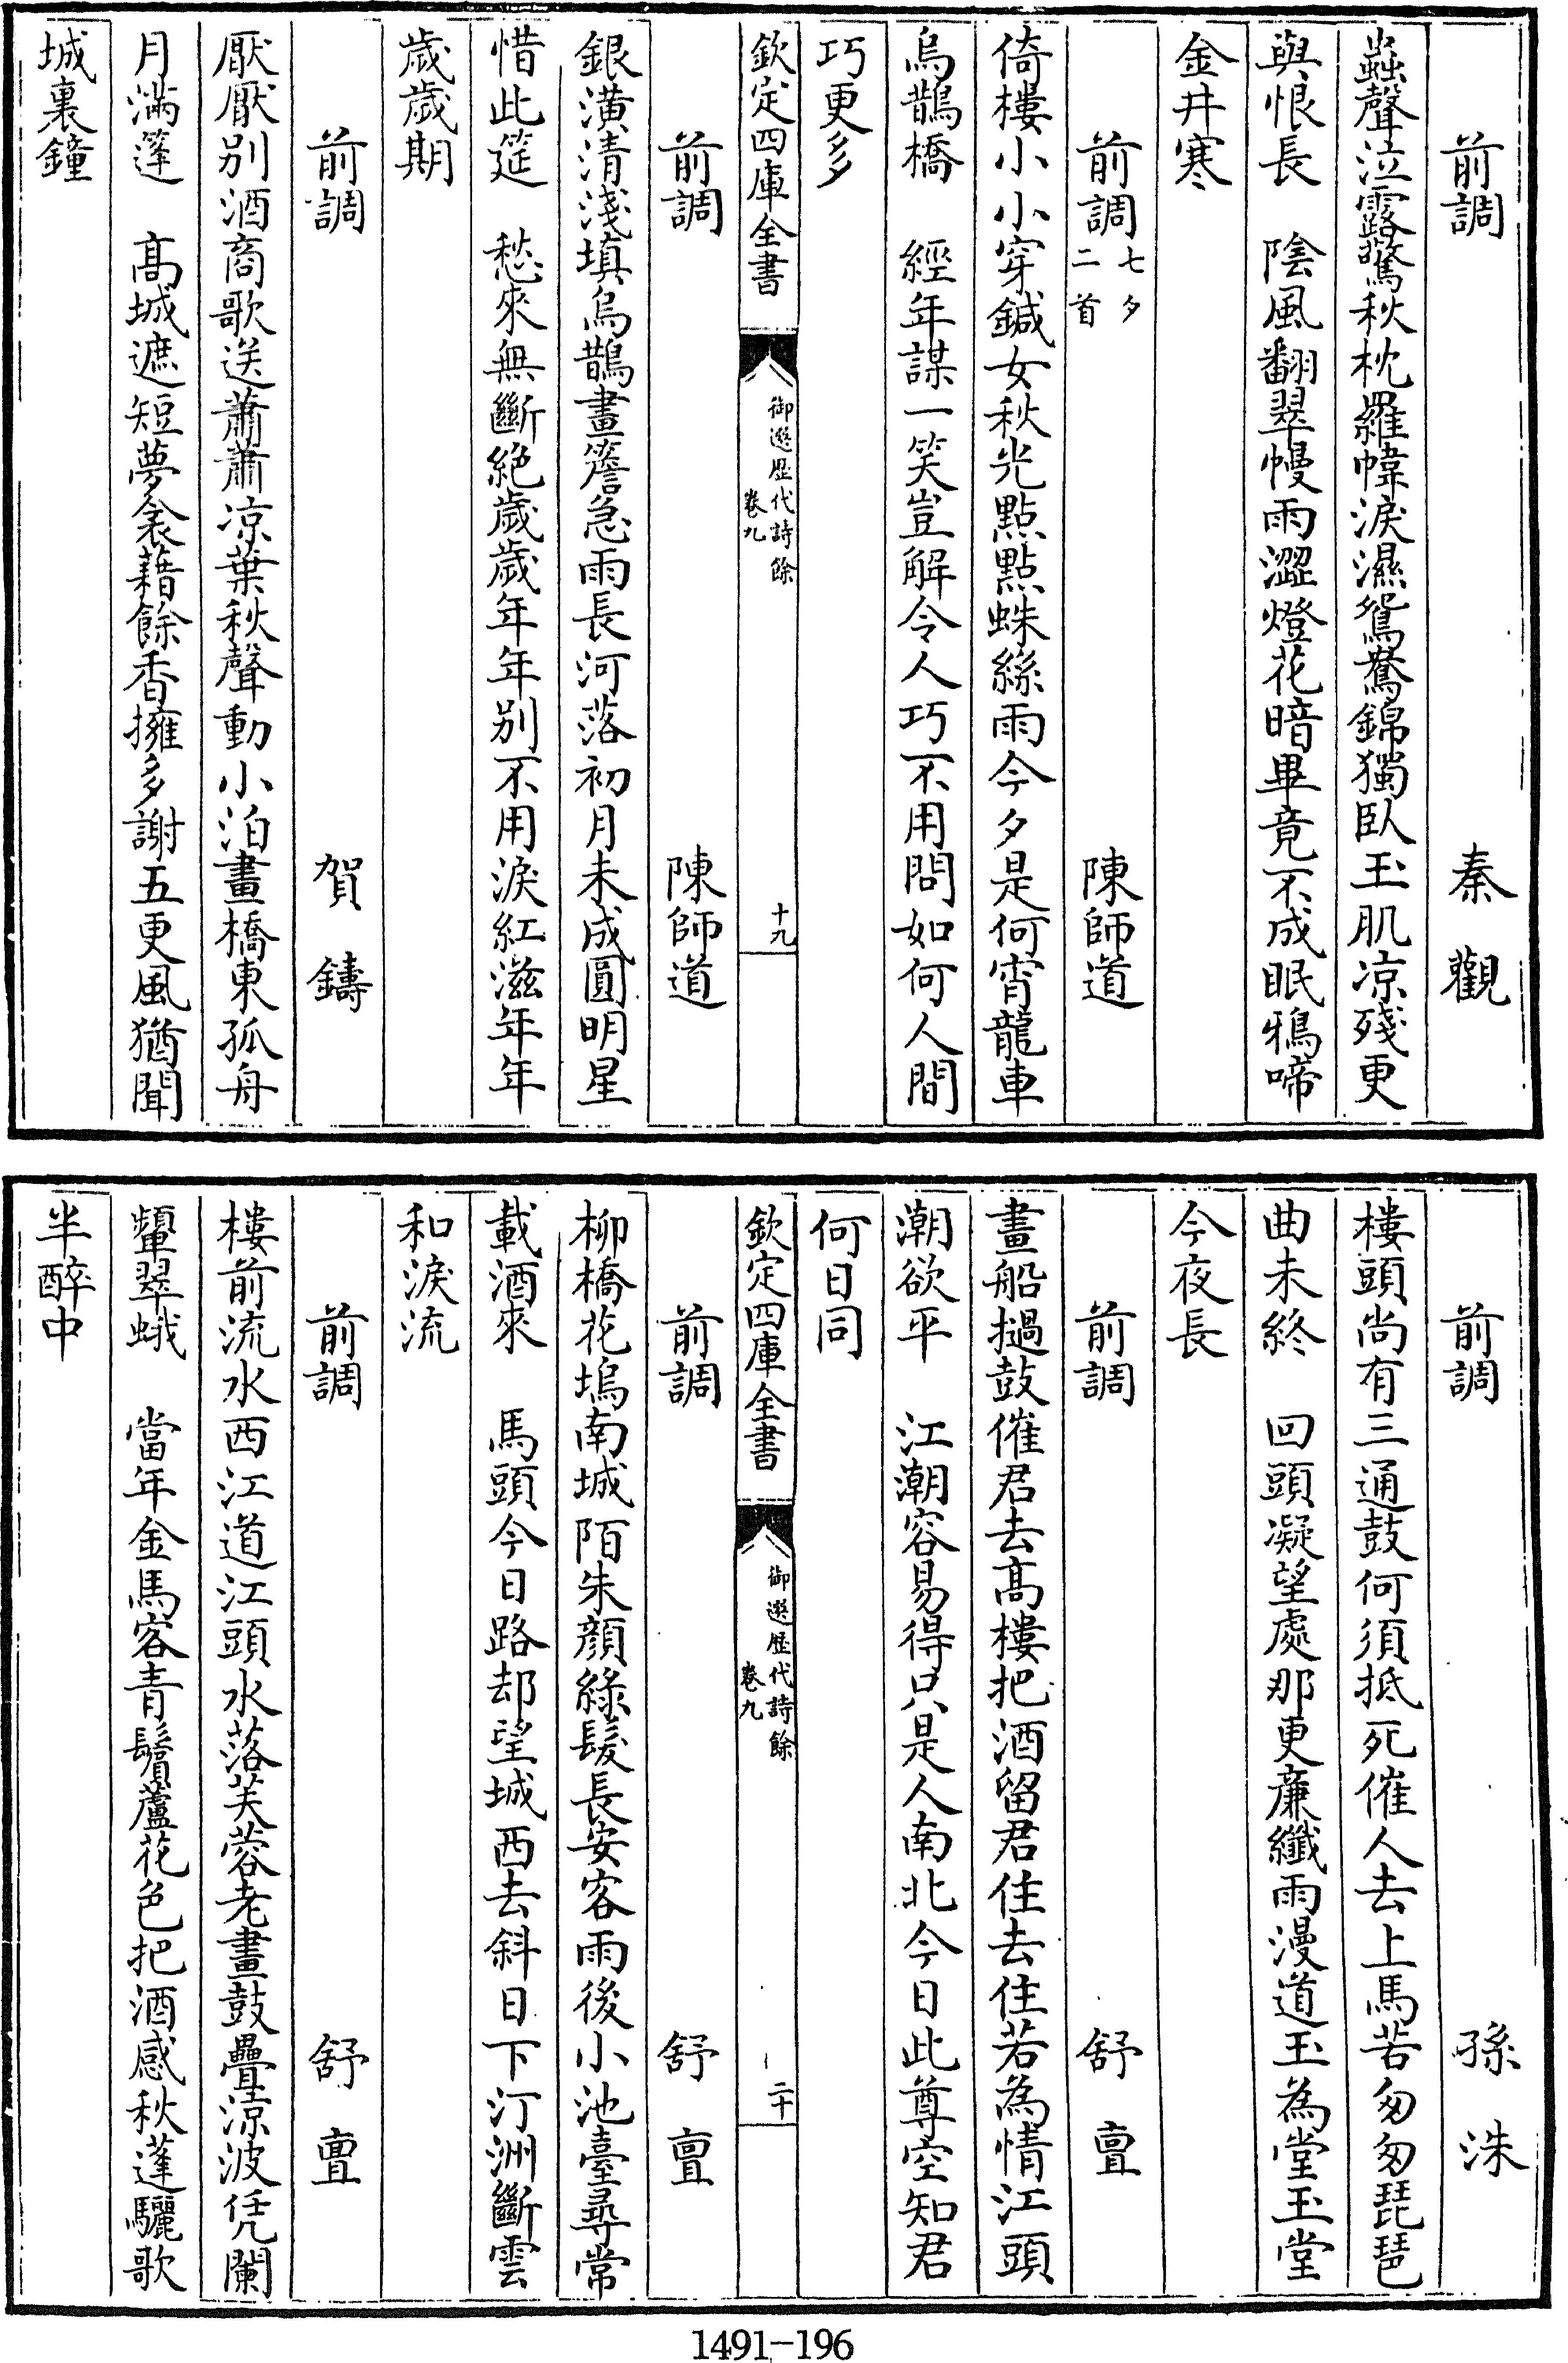 前調　秦觀
蟲聲泣露驚秋枕羅幃淚濕鴛鴦錦獨臥玉肌凉殘更
與恨長　陰風翻翠幔雨澀燈花暗畢竟不成眠鴉啼
金井寒
前調七夕二首　陳師道
倚樓小小穿鍼女秋光點點蛛絲雨今夕是何宵龍車
烏鵲橋　經年謀一笑豈解令人巧不用問如何人間
巧更多
欽定四庫全書　御選歷代詩餘卷九　十九
前調　陳師道
銀潢清淺填烏鵲畫簷急雨長河落初月未成圓明星
惜此筵　愁來無斷絶歲歲年年别不用淚紅滋年年
歲歲期
前調　賀鑄
厭厭别酒商歌送蕭蕭凉葉秋聲動小泊畫橋東孤舟
月滿篷　髙城遮短夢衾藉餘香擁多謝五更風猶聞
城裏鐘
前調　孫洙
樓頭尚有三通鼓何須抵死催人去上馬苦匆匆琵琶
曲未終　回頭凝望處那更廉纖雨漫道玉為堂玉堂
今夜長
前調　舒亶
畫船撾鼓催君去髙樓把酒留君住去住若為情江頭
潮欲平　江潮容易得只是人南北今日此尊空知君
何日同
欽定四庫全書　御選歷代詩餘卷九　二十
前調　舒亶
柳橋花塢南城陌朱顔綠髮長安客雨後小池臺尋常
載酒來　馬頭今日路却望城西去斜日下汀洲斷雲
和淚流
前調　舒亶
樓前流水西江道江頭水落芙蓉老畫鼓疊凉波凭闌
顰翠蛾　當年金馬客青鬢蘆花色把酒感秋蓬驪歌
半醉中
1491-196